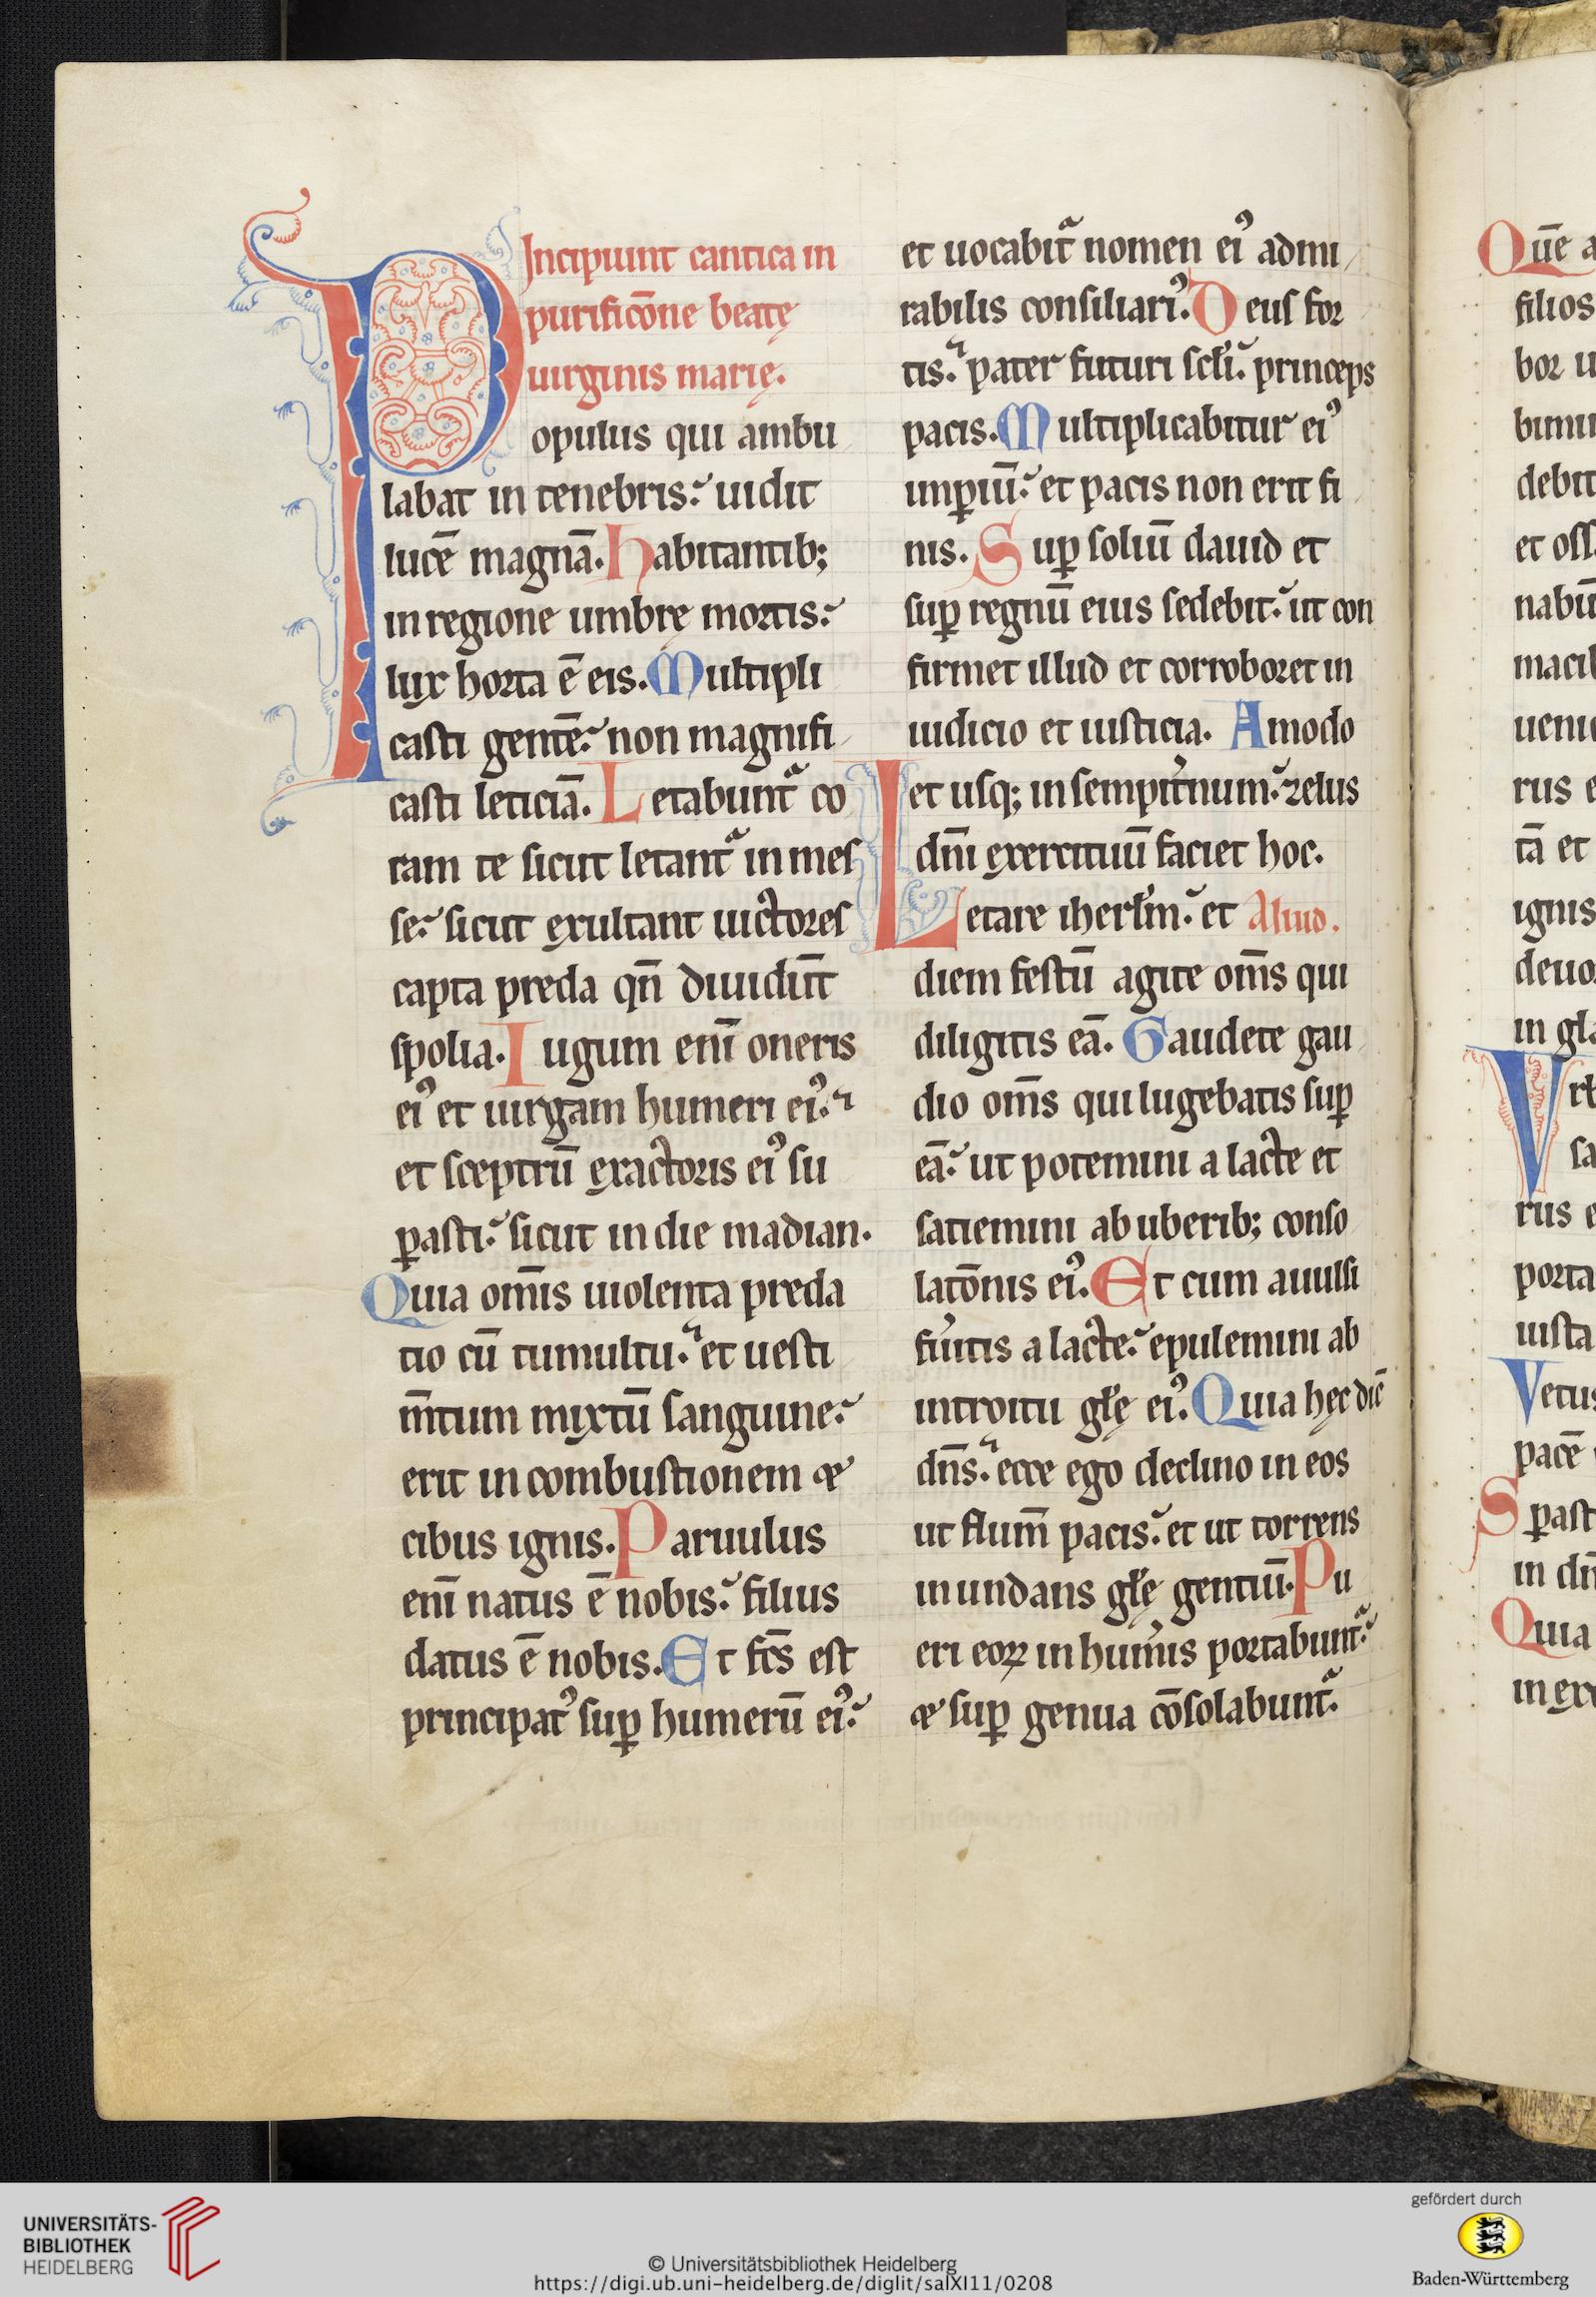 Incipiunt cantica in
purificōne beatę
uirginis marię.
Populus qui ambu
labat in tenebris: uidit
lucē magnā. Habitantib;
in regione umbrę mortis:
lux horta ē eis. Multipli
casti gentē: non magnifi
casti leticiā. Letabunt᷑ co
ram te sicut letant᷑ in mes
se: sicut exultant uictores
capta preda qn̄ diuidūt
spolia. Iugum enī oneris
eiꝰ et uirgam humeri eiꝰ:
et sceptrū exactoris eiꝰ su
ꝑasti: sicut in die madian.
Quia om̄is uiolenta preda
tio cū tumultu: et uesti
m̄tum mixtū sanguine:
erit in combustionem ⁊
cibus ignis. Paruulus
enī natus ē nobis: filius
datus ē nobis. Et fc̄s est
principatꝰ suꝑ humerū eiꝰ:
et uocabit᷑ nomen eiꝰ admi
rabilis consiliariꝰ. Deus for
tis: pater futuri scl̄i: princeps
pacis. Multiplicabitur eiꝰ
imꝑiū: et pacis non erit fi
nis. Suꝑ soliū dauid et
suꝑ regnū eius sedebit: ut con
firmet illud et corroboret in
iudicio et iusticia. Amodo
et usq; in sempit͛num: zelus
dn̄i exercituū faciet hoc.
Letare iherl̄m: et Aliud.
diem festū agite om̄s qui
diligitis eā. Gaudete gau
dio om̄s qui lugebatis suꝑ
eā: ut potemini a lacte et
satiemini ab uberib; conso
latōnis eiꝰ. Et cum auulsi
fu͛itis a lacte: epulemini ab
introitu gl̄ę eiꝰ. Quia hęc dic̄
dn̄s: ecce ego declino in eos
ut flum̄ pacis: et ut torrens
inundans gl̄ę gentiū. Pu
eri eoꝝ in hum͛is portabunt᷑:
⁊ suꝑ genua cōsolabunt᷑.
Qūe a
filios
bor u
debit
et oss
nabū
macil
rus e
tā et
ignis
deuo
in gla
rus e
porta
iusta
Vetus
pacē
in dn̄
Quia
UNIVERSITÄTS-
BIBLIOTHEK
HEIDELBERG
© Universitätsbibliothek Heidelberg
https://digi.ub.uni-heidelberg.de/diglit/salXI11/0208
gefördert durch
Baden-Württemberg